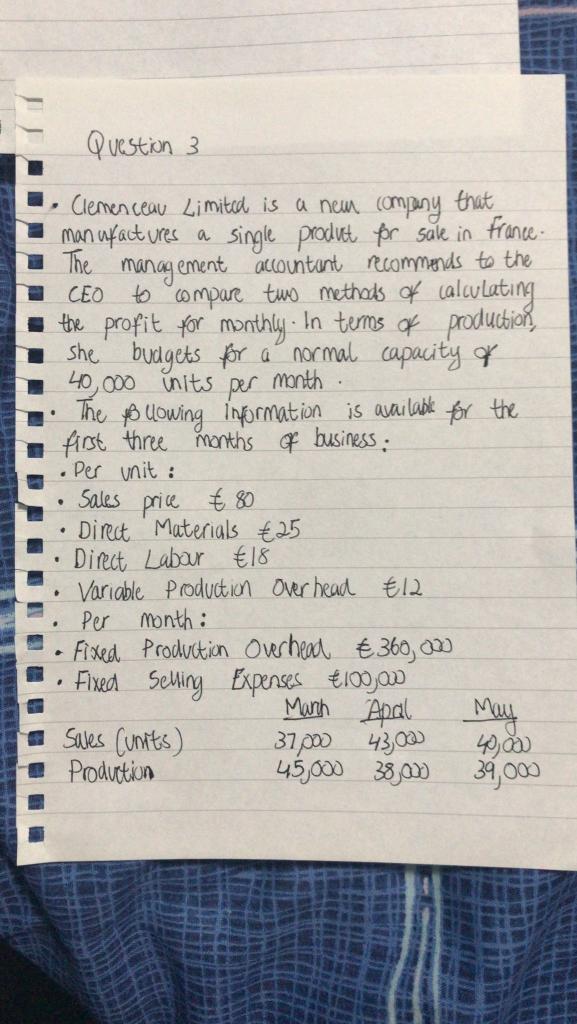 Question 3
• Clemenceau Limited is a new company that
manufactures a single product for sale in France.
The management accountant recommends to the
CEO to compare two methods of calculating
the profit for monthly. In terms of production,
she budgets for a normal capacity of
40,000 units per month.
• The following information is available for the
first three months of business:
• Per unit:
• Sales price € 80
• Direct Materials €25
• Direct Labour €18
• Variable Production Overhead €12
• Per month:
• Fixed Production Overhead €360,000
• Fixed Selling Expenses €100,000
March April May
Sales (units) 37,000 43,000 40,000
Production 45,000 38,000 39,000